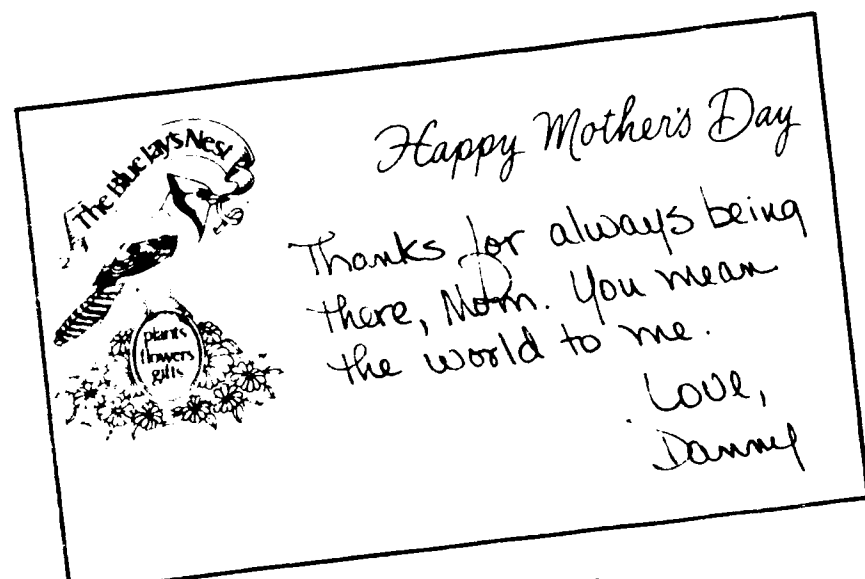 The Blue Jay's Nest
plants
flowers
gifts
Happy Mother's Day
Thanks for always being
there, Mom. You mean
the world to me.
Love,
Danny